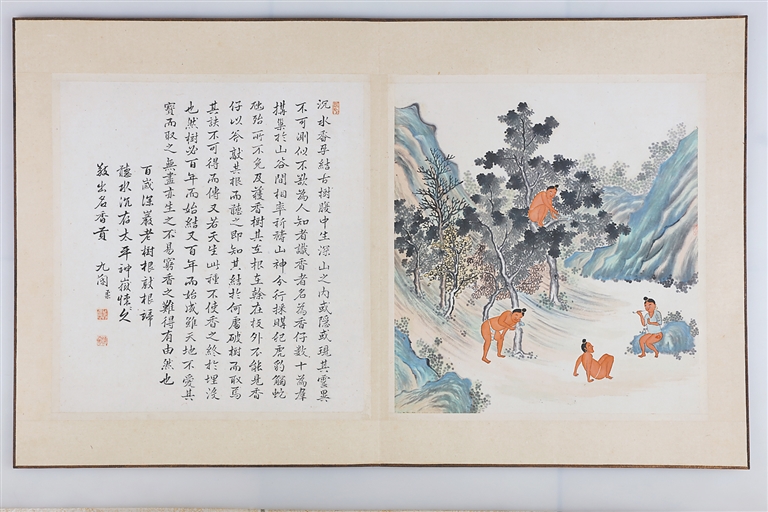 沉水香孕結古樹腹中生深山之內或隱或現其靈異
不可測似不欲為人知者識香者名為香仔數十為羣
搆巢於山谷間相率祈禱山神分行採購犯虎豹觸蛇
虺殆所不免及獲香樹其在根在榦在枝外不能見香
仔以斧敲其根而聽之即知其結於何處破樹而取焉
其訣不可得而傳又若天生此種不使香之終於埋沒
也然樹必百年而始結又百年而始成雖天地不愛其
寶而取之無盡亦生之不易窮香之難得有由然也
百歲深巖老樹根敲根諦
聽水沉存太平神嶽懷柔久
敬出名香貢九閽